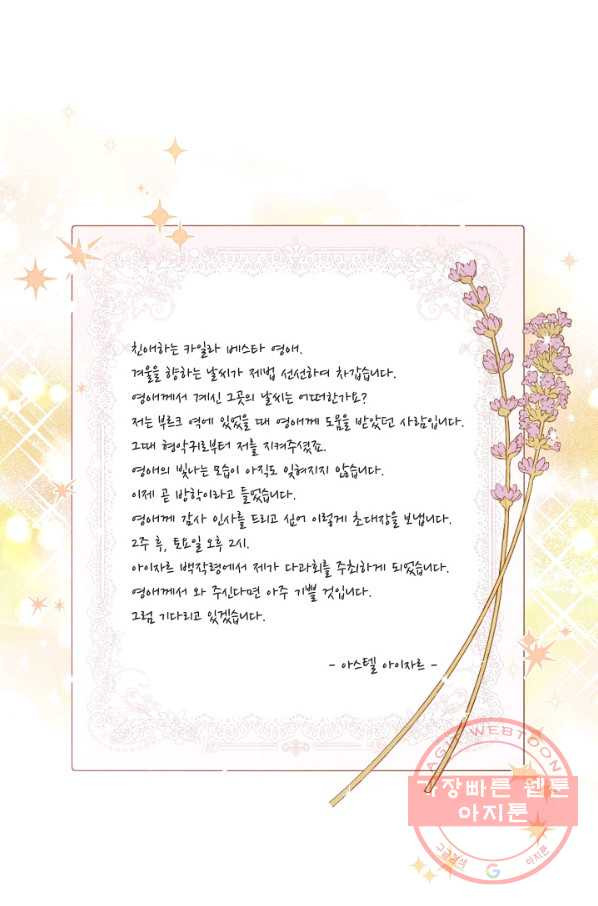 친애하는 카일라 베스타 영애.
겨울을 향하는 날씨가 제법 선선하여 차갑습니다.
영애께서 계신 그곳의 날씨는 어떠한가요?
저는 부르크 역에 있었을 때 영애께 도움을 받았던 사람입니다.
그때 현악귀로부터 저를 지켜주셨죠.
영애의 빛나는 모습이 아직도 잊혀지지 않습니다.
이제 곧 방학이라고 들었습니다.
영애께 감사 인사를 드리고 싶어 이렇게 초대장을 보냅니다.
2주 후, 토요일 오후 2시.
아이자르 백작령에서 제가 다과회를 주최하게 되었습니다.
영애께서 와 주신다면 아주 기쁠 것입니다.
그럼 기다리고 있겠습니다.
- 아스텔 아이자르 -
AGIT WEBTOON
가장빠른 웹툰
아지툰
구글검색 G 아지툰